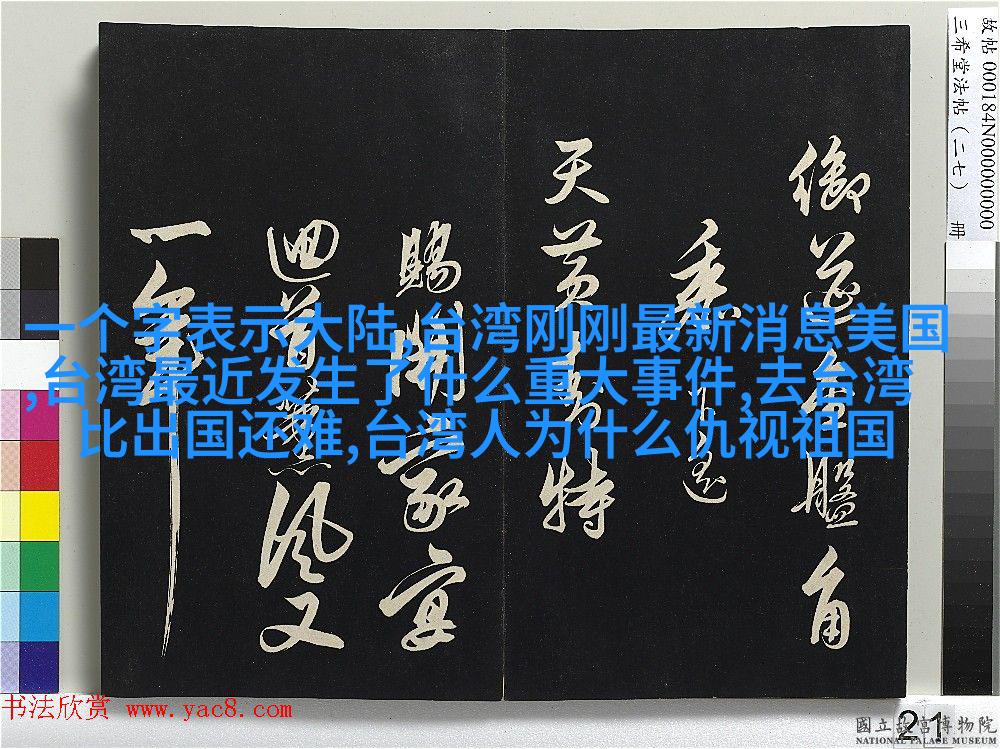 故帖 000184N000000000
三希堂法帖(二七) 冊
御盤角
天特
賜家宴
風又
一年
一个字表示大陆,台湾刚刚最新消息美国
,台湾最近发生了什么重大事件,去台湾
比出国还难,台湾人为什么仇视祖国
书法欣赏 www.yac8.com
21
國立故宮博物院
NATIONAL PALACE MUSEUM